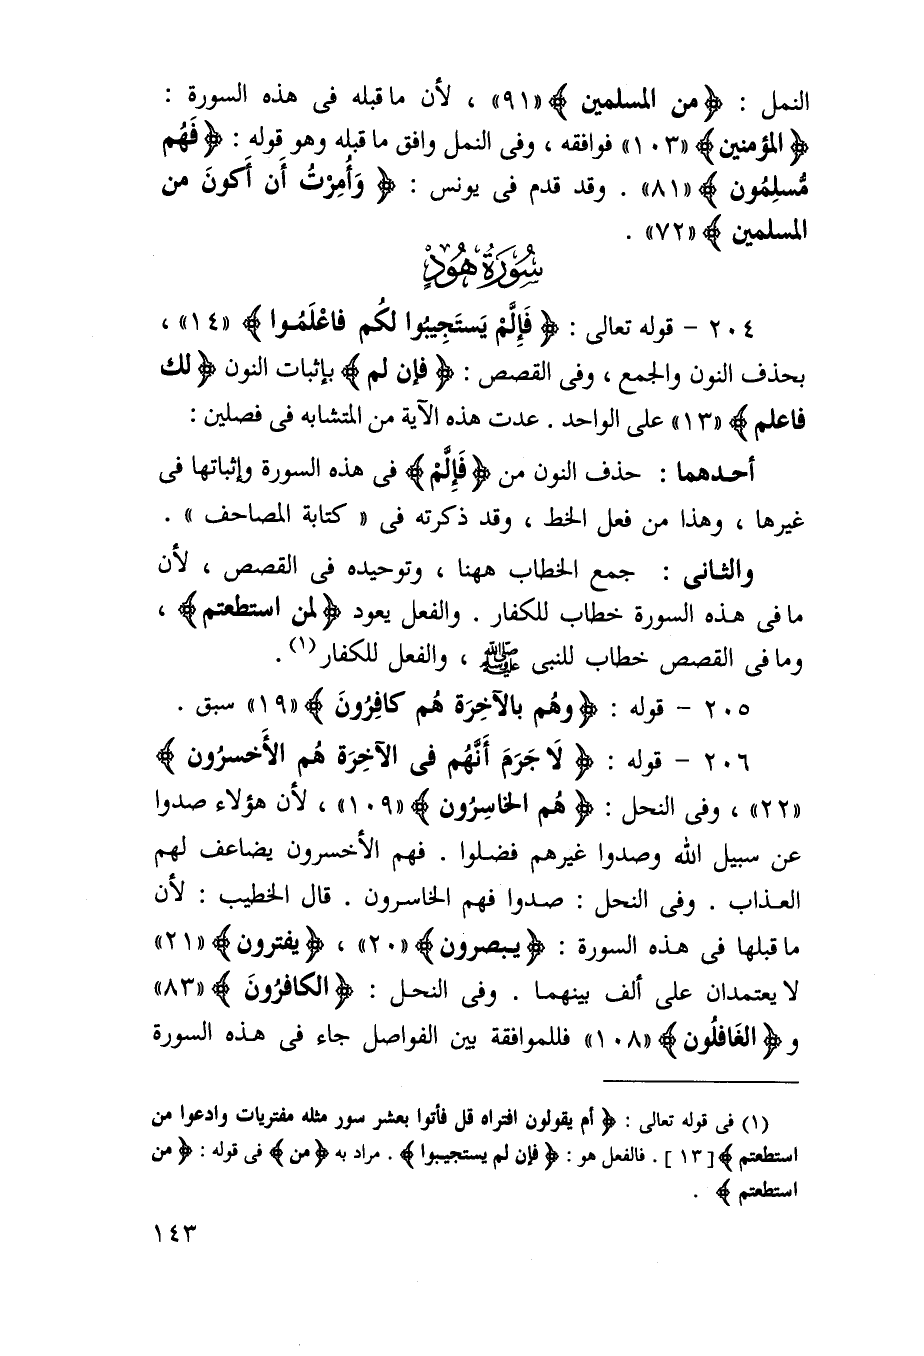 النمل : ﴿ من المسلمين ﴾ «٩١» ، لأن ماقبله فى هذه السورة :
﴿ المؤمنين ﴾ «١٠٣» فوافقه ، وفى النمل وافق ماقبله وهو قوله : ﴿ فَهُم
مُّسلِمُون ﴾ «٨١» . وقد قدم فى يونس : ﴿ وَأُمِرْتُ أَن أَكونَ من
المسلمين ﴾ «٧٢» .
سُورَةُ هُودٍ
٢٠٤ – قوله تعالى : ﴿ فَإِلَّمْ يَستَجِيبُوا لكُم فاعْلَمُوا ﴾ «١٤» ،
بحذف النون والجمع ، وفى القصص : ﴿ فإن لم ﴾ بإثبات النون ﴿ لك
فاعلم ﴾ «١٣» على الواحد . عدت هذه الآية من المتشابه فى فصلين :
أحدهما : حذف النون من ﴿ فَإِلَّمْ ﴾ فى هذه السورة وإثباتها فى
غيرها ، وهذا من فعل الخط ، وقد ذكرته فى « كتابة المصاحف » .
والثانى : جمع الخطاب ههنا ، وتوحيده فى القصص ، لأن
مافى هذه السورة خطاب للكفار . والفعل يعود ﴿ لمن استطعتم ﴾ ،
ومافى القصص خطاب للنبى ﷺ ، والفعل للكفار(١) .
٢٠٥ – قوله : ﴿ وهُم بالآخِرَة هُم كافِرُونَ ﴾ «١٩» سبق .
٢٠٦ – قوله : ﴿ لَا جَرَمَ أَنَّهُم فى الآخِرَة هُم الأَخسرُون ﴾
«٢٢» ، وفى النحل : ﴿ هُم الخاسِرُون ﴾ «١٠٩» ، لأن هؤلاء صدوا
عن سبيل الله وصدوا غيرهم فضلوا . فهم الأخسرون يضاعف لهم
العذاب . وفى النحل : صدوا فهم الخاسرون . قال الخطيب : لأن
ماقبلها فى هذه السورة : ﴿ يبصرون ﴾ «٢٠» ، ﴿ يفترون ﴾ «٢١»
لايعتمدان على ألف بينهما . وفى النحل : ﴿ الكافرُونَ ﴾ «٨٣»
و ﴿ الغَافلُون ﴾ «١٠٨» فللموافقة بين الفواصل جاء فى هذه السورة
(١) فى قوله تعالى : ﴿ أم يقولون افتراه قل فأتوا بعشر سور مثله مفتريات وادعوا من
استطعتم ﴾ [ ١٣ ] . فالفعل هو : ﴿ فإن لم يستجيبوا ﴾ . مراد به ﴿ من ﴾ فى قوله : ﴿ من
استطعتم ﴾ .
١٤٣